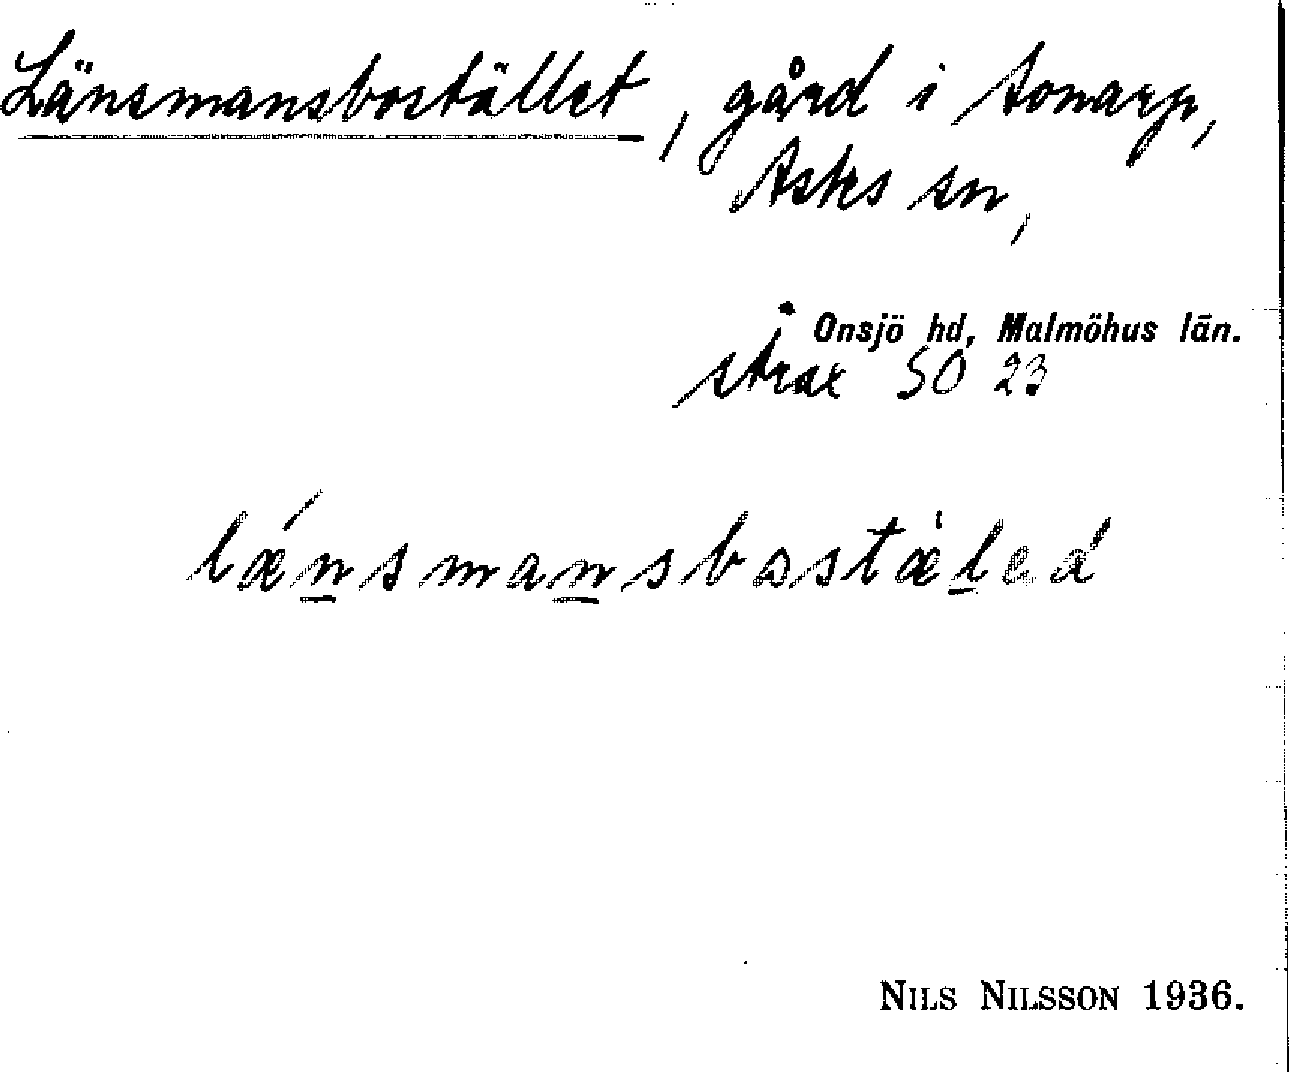 Länsmansbostället, gård i Aonarp,
Asks sn,
Onsjö hd, Malmöhus län.
strax SO 23
lǽnsmansbostæ̍led
NILS NILSSON 1936.